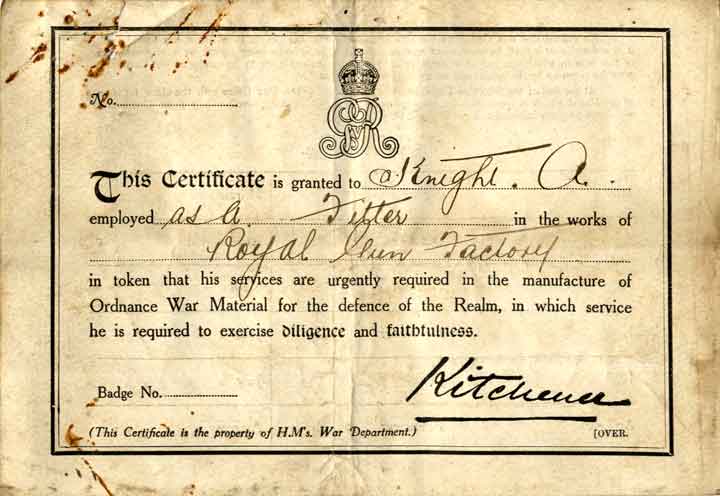 No.
This Certificate is granted to Knight. A.
employed as a Fitter in the works of
Royal Gun Factory
in token that his services are urgently required in the manufacture of
Ordnance War Material for the defence of the Realm, in which service
he is required to exercise diligence and faithfulness.
Badge No.
Kitchener
(This Certificate is the property of H.M's. War Department.)
[OVER.